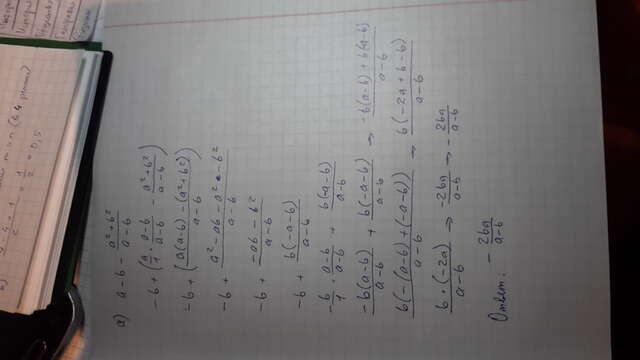 = 1/2 = 0,5
а) a-b - (a²+b²)/(a-b)
-b + (a/1 · (a-b)/(a-b) - (a²+b²)/(a-b))
-b + ((a(a-b) - (a²+b²))/(a-b))
-b + (a² - ab - a² - b²)/(a-b)
-b + (-ab - b²)/(a-b)
-b + b(-a-b)/(a-b)
-b/1 · (a-b)/(a-b) + b(-a-b)/(a-b)
-b(a-b)/(a-b) + b(-a-b)/(a-b) → (-b(a-b) + b(-a-b))/(a-b)
b(-(a-b)+(-a-b))/(a-b) → b(-2a+b-b)/(a-b)
b·(-2a)/(a-b) → -2ba/(a-b) → - 2ba/(a-b)
Ответ: - 2ba/(a-b)